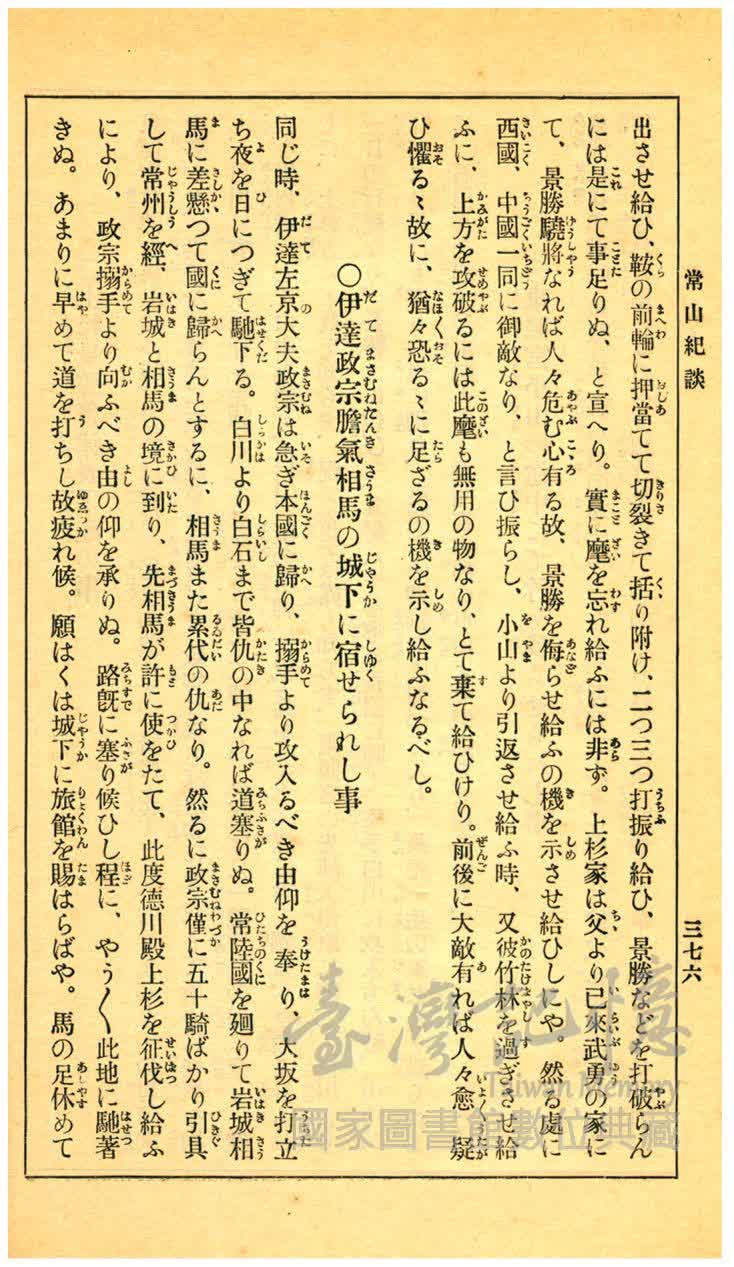 常山紀談
三七六
出させ給ひ、鞍の前輪に押當てて切裂きて括り附け、二つ三つ打振り給ひ、景勝などを打破らん
には是にて事足りぬ、と宣へり。實に麾を忘れ給ふには非ず。上杉家は父より已來武勇の家に
て、景勝驍將なれば人々危む心有る故、景勝を侮らせ給ふの機を示させ給ひしにや。然る處に
西國、中國一同に御敵なり、と言ひ振らし、小山より引返させ給ふ時、又彼竹林を過ぎさせ給
ふに、上方を攻破るには此麾も無用の物なり、とて棄て給ひけり。前後に大敵有れば人々愈疑
ひ懼るゝ故に、猶々恐るゝに足ざるの機を示し給ふなるべし。
○伊達政宗膽氣相馬の城下に宿せられし事
同じ時、伊達左京大夫政宗は急ぎ本國に歸り、搦手より攻入るべき由仰を奉り、大坂を打立
ち夜を日につぎて馳下る。白川より白石まで皆仇の中なれば道塞りぬ。常陸國を廻りて岩城相
馬に差懸つて國に歸らんとするに、相馬また累代の仇なり。然るに政宗僅に五十騎ばかり引具
して常州を經、岩城と相馬の境に到り、先相馬が許に使をたて、此度德川殿上杉を征伐し給ふ
により、政宗搦手より向ふべき由の仰を承りぬ。路旣に塞り候ひし程に、やう〱此地に馳著
きぬ。あまりに早めて道を打ちし故疲れ候。願はくは城下に旅館を賜はらばや。馬の足休めて
臺灣記憶
Taiwan Memory
國家圖書館數位典藏